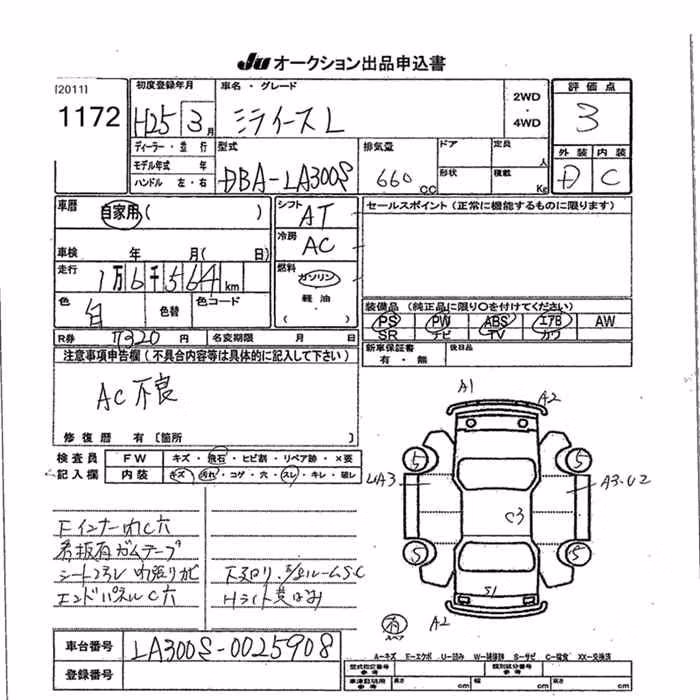 JU オークション出品申込書
[2011]
1172
初度登録年月
H25 3月
車名・グレード
ミライース L
2WD
・
4WD
評価点
3
ディーラー・並行
モデル年式 年
ハンドル 左・右
型式
DBA-LA300S
排気量
660 CC
ドア
形状
定員 人
積載 Kg
外装 内装
D C
車歴
自家用( )
シフト
AT
セールスポイント(正常に機能するものに限ります)
車検 年 月( 日)
冷房
AC
走行
1万6千564 km
燃料
ガソリン
・
軽油
( )
色
白
色替
色コード
装備品(純正品に限り○を付けてください)
PS PW ABS エアB AW
SR ナビ TV カワ
R券 7320 円
名変期限 月 日
新車保証書
有・無
後日品
注意事項申告欄(不具合内容等は具体的に記入して下さい)
AC不良
修復歴 有[箇所 ]
検査員
記入欄
FW キズ・飛石・ヒビ割・リペア跡・×要
内装 キズ・汚れ・コゲ・穴・スレ・キレ・破レ
A1
A2
5
5
UA3
A3・U2
C3
5
5
S1
A2
有
スペア
Fインナーわれ穴
看板有ガムテープ
エンドパネルC穴
下廻り
Hライト黄ばみ
車台番号
LA300S-0025908
登録番号
A=キズ E=エクボ U=凹み W=補修跡 S=サビ C=腐食 XX=交換済
型式指定番号
参考
類別区分番号
参考
車庫証明用
参考
長さ cm
幅 cm
高さ cm